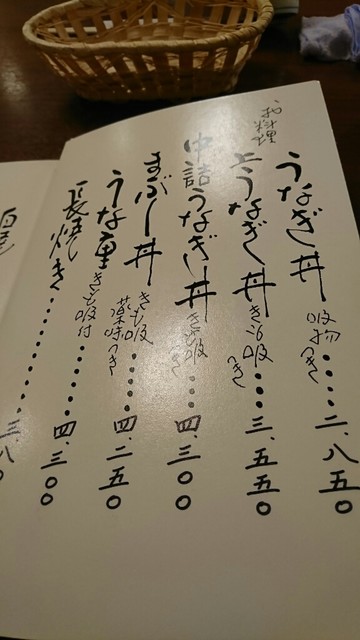 お料理
うなぎ丼 吸物つき・・・・二、八五〇
上うなぎ丼 きも吸つき・・・・三、五五〇
中詰うなぎ丼 きも吸つき・・・四、三〇〇
まぶし丼 きも吸薬味つき・・・四、二五〇
うな重 きも吸付・・・・四、三〇〇
長焼き・・・・・・・・・三、八〇